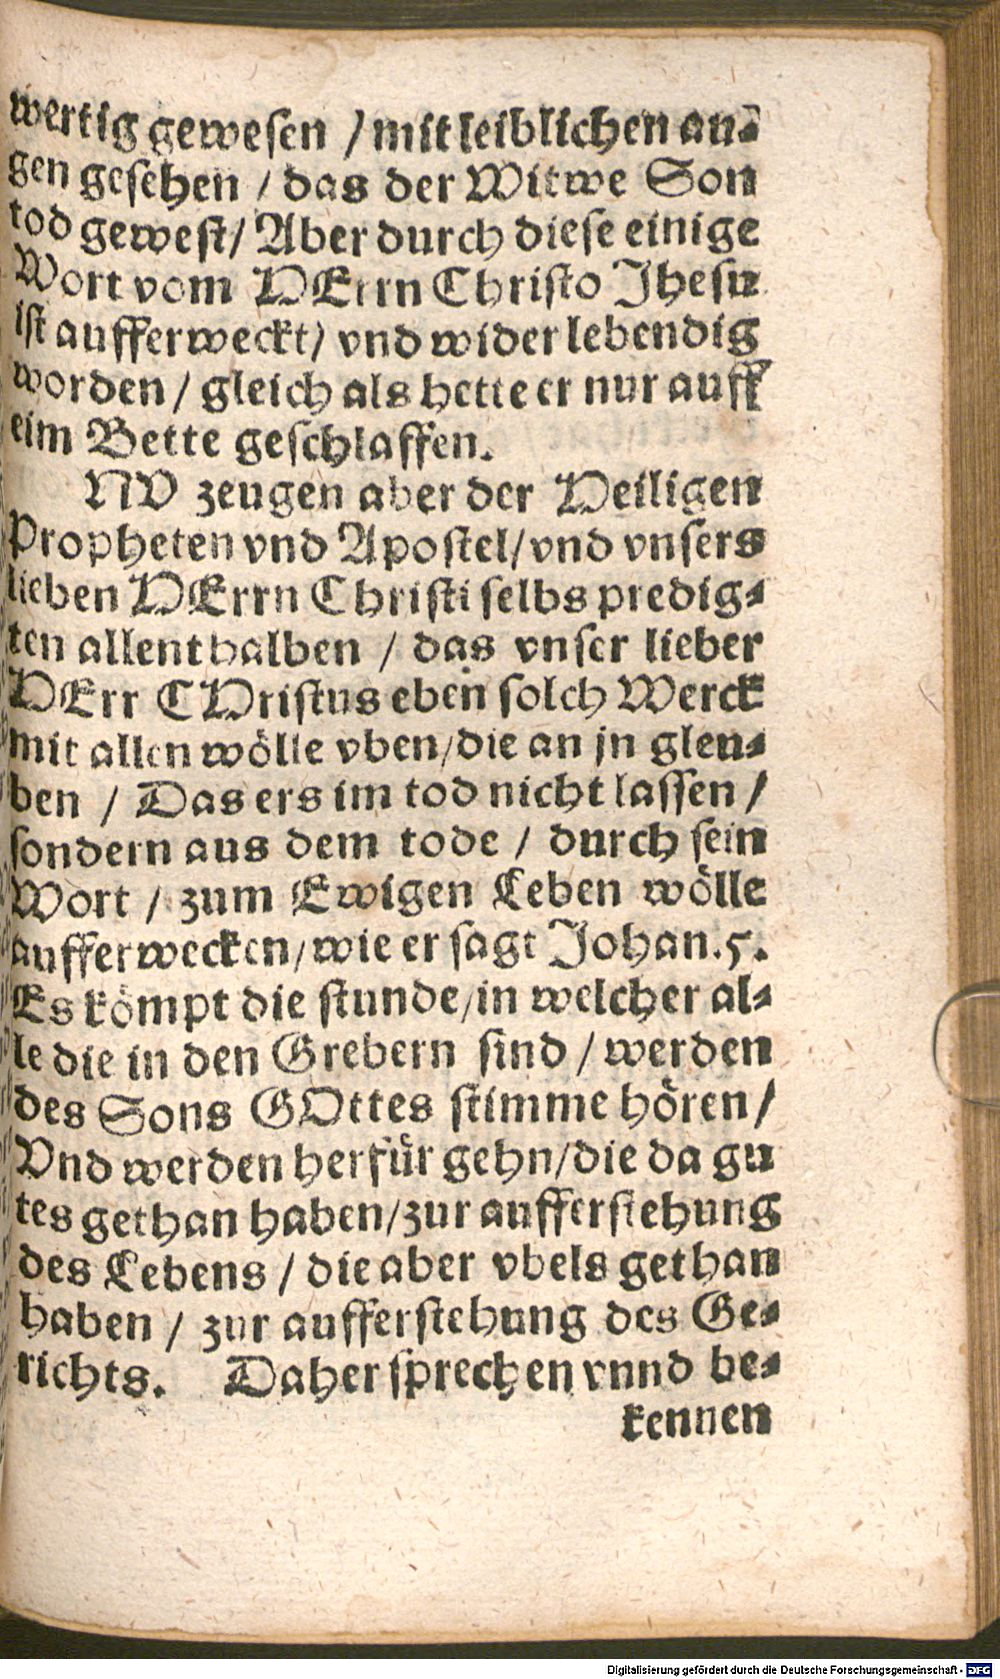 wertig gewesen / mit leiblichen au-
gen gesehen / das der Witwe Son
tod gewest / Aber durch diese einige
Wort vom HErrn Christo Jhesu
ist aufferweckt / vnd wider lebendig
worden / gleich als hette er nur auff
eim Bette geschlaffen.
NV zeugen aber der Heiligen
Propheten vnd Apostel / vnd vnsers
lieben HErrn Christi selbs predig-
ten allenthalben / das vnser lieber
HErr CHristus eben solch Werck
mit allen wölle vben / die an jn gleu-
ben / Das ers im tod nicht lassen /
sondern aus dem tode / durch sein
Wort / zum Ewigen Leben wölle
aufferwecken / wie er sagt Johan. 5.
Es kömpt die stunde / in welcher al-
le die in den Grebern sind / werden
des Sons GOttes stimme hören /
Vnd werden herfür gehn / die da gu
tes gethan haben / zur aufferstehung
des Lebens / die aber vbels gethan
haben / zur aufferstehung des Ge-
richts. Daher sprechen vnnd be-
kennen
Digitalisierung gefördert durch die Deutsche Forschungsgemeinschaft - DFG